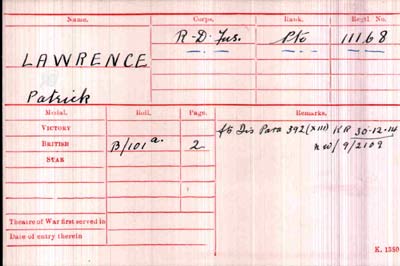 Name. Corps. Rank. Regtl No.
R-D-Fus. Pte 11168
LAWRENCE
Patrick
Medal. Roll. Page. Remarks.
VICTORY
BRITISH B/101 a. 2
STAR
Dis Para 392 (XIII) KR 30-12-14
nw/9/2109
Theatre of War first served in
Date of entry therein
K. 1380